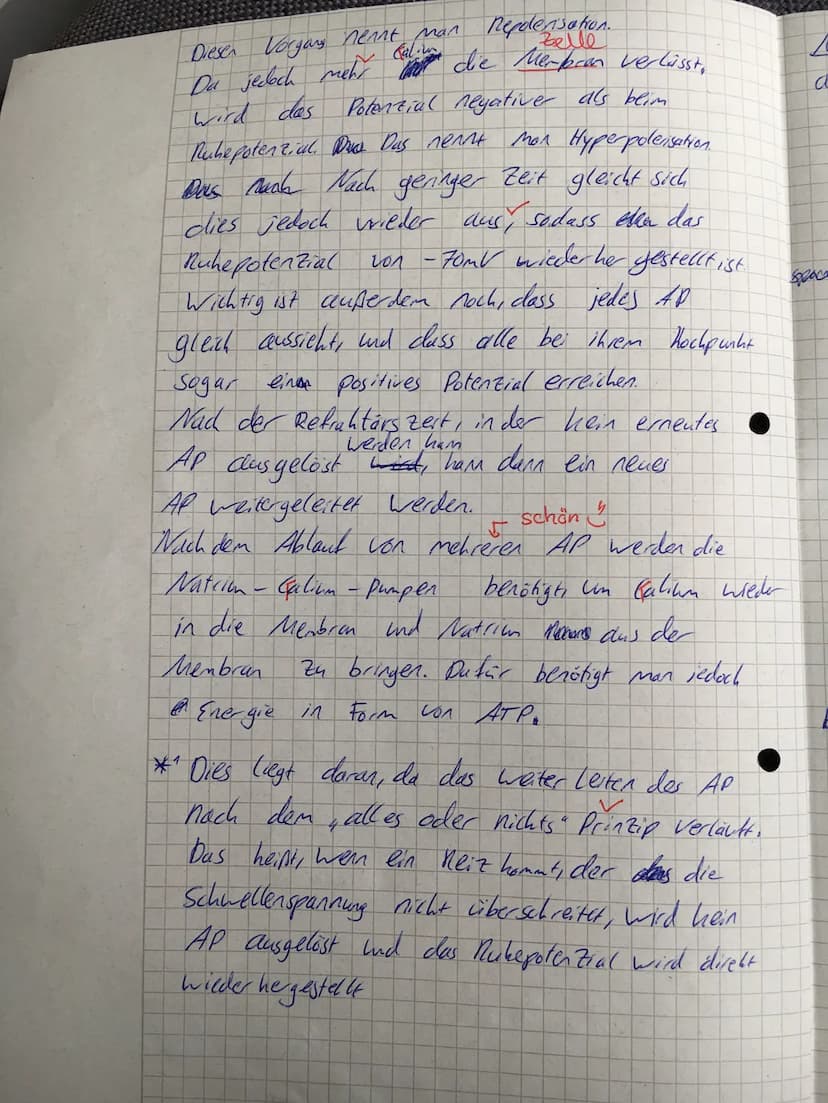 Diesen Vorgang nennt man Repolarisation.
Zelle
Kalium
Da jedoch mehr die Membran verlässt,
wird das Potenzial negativer als beim
Ruhepotenzial. Das nennt man Hyperpolarisation
Nach geringer Zeit gleicht sich
dies jedoch wieder aus, sodass das
Ruhepotenzial von -70mV wiederhergestellt ist
Wichtig ist außerdem noch, dass jedes AP
gleich aussieht, und dass alle bei ihrem Hochpunkt
sogar ein positives Potenzial erreichen.
Nach der Refraktärszeit, in der kein erneutes
werden kann
AP ausgelöst wird, kann dann ein neues
AP weitergeleitet werden.
schön
Nach dem Ablauf von mehreren AP werden die
Natrium-Kalium-Pumpen benötigt, um Kalium wieder
in die Membran und Natrium aus der
Membran zu bringen. Dafür benötigt man jedoch
Energie in Form von ATP.
*1 Dies liegt daran, da das weiter leiten des AP
nach dem „alles oder nichts" Prinzip verläuft.
Das heißt, wenn ein Reiz kommt, der die
Schwellenspannung nicht überschreitet, wird kein
AP ausgelöst und das Ruhepotenzial wird direkt
wiederhergestellt